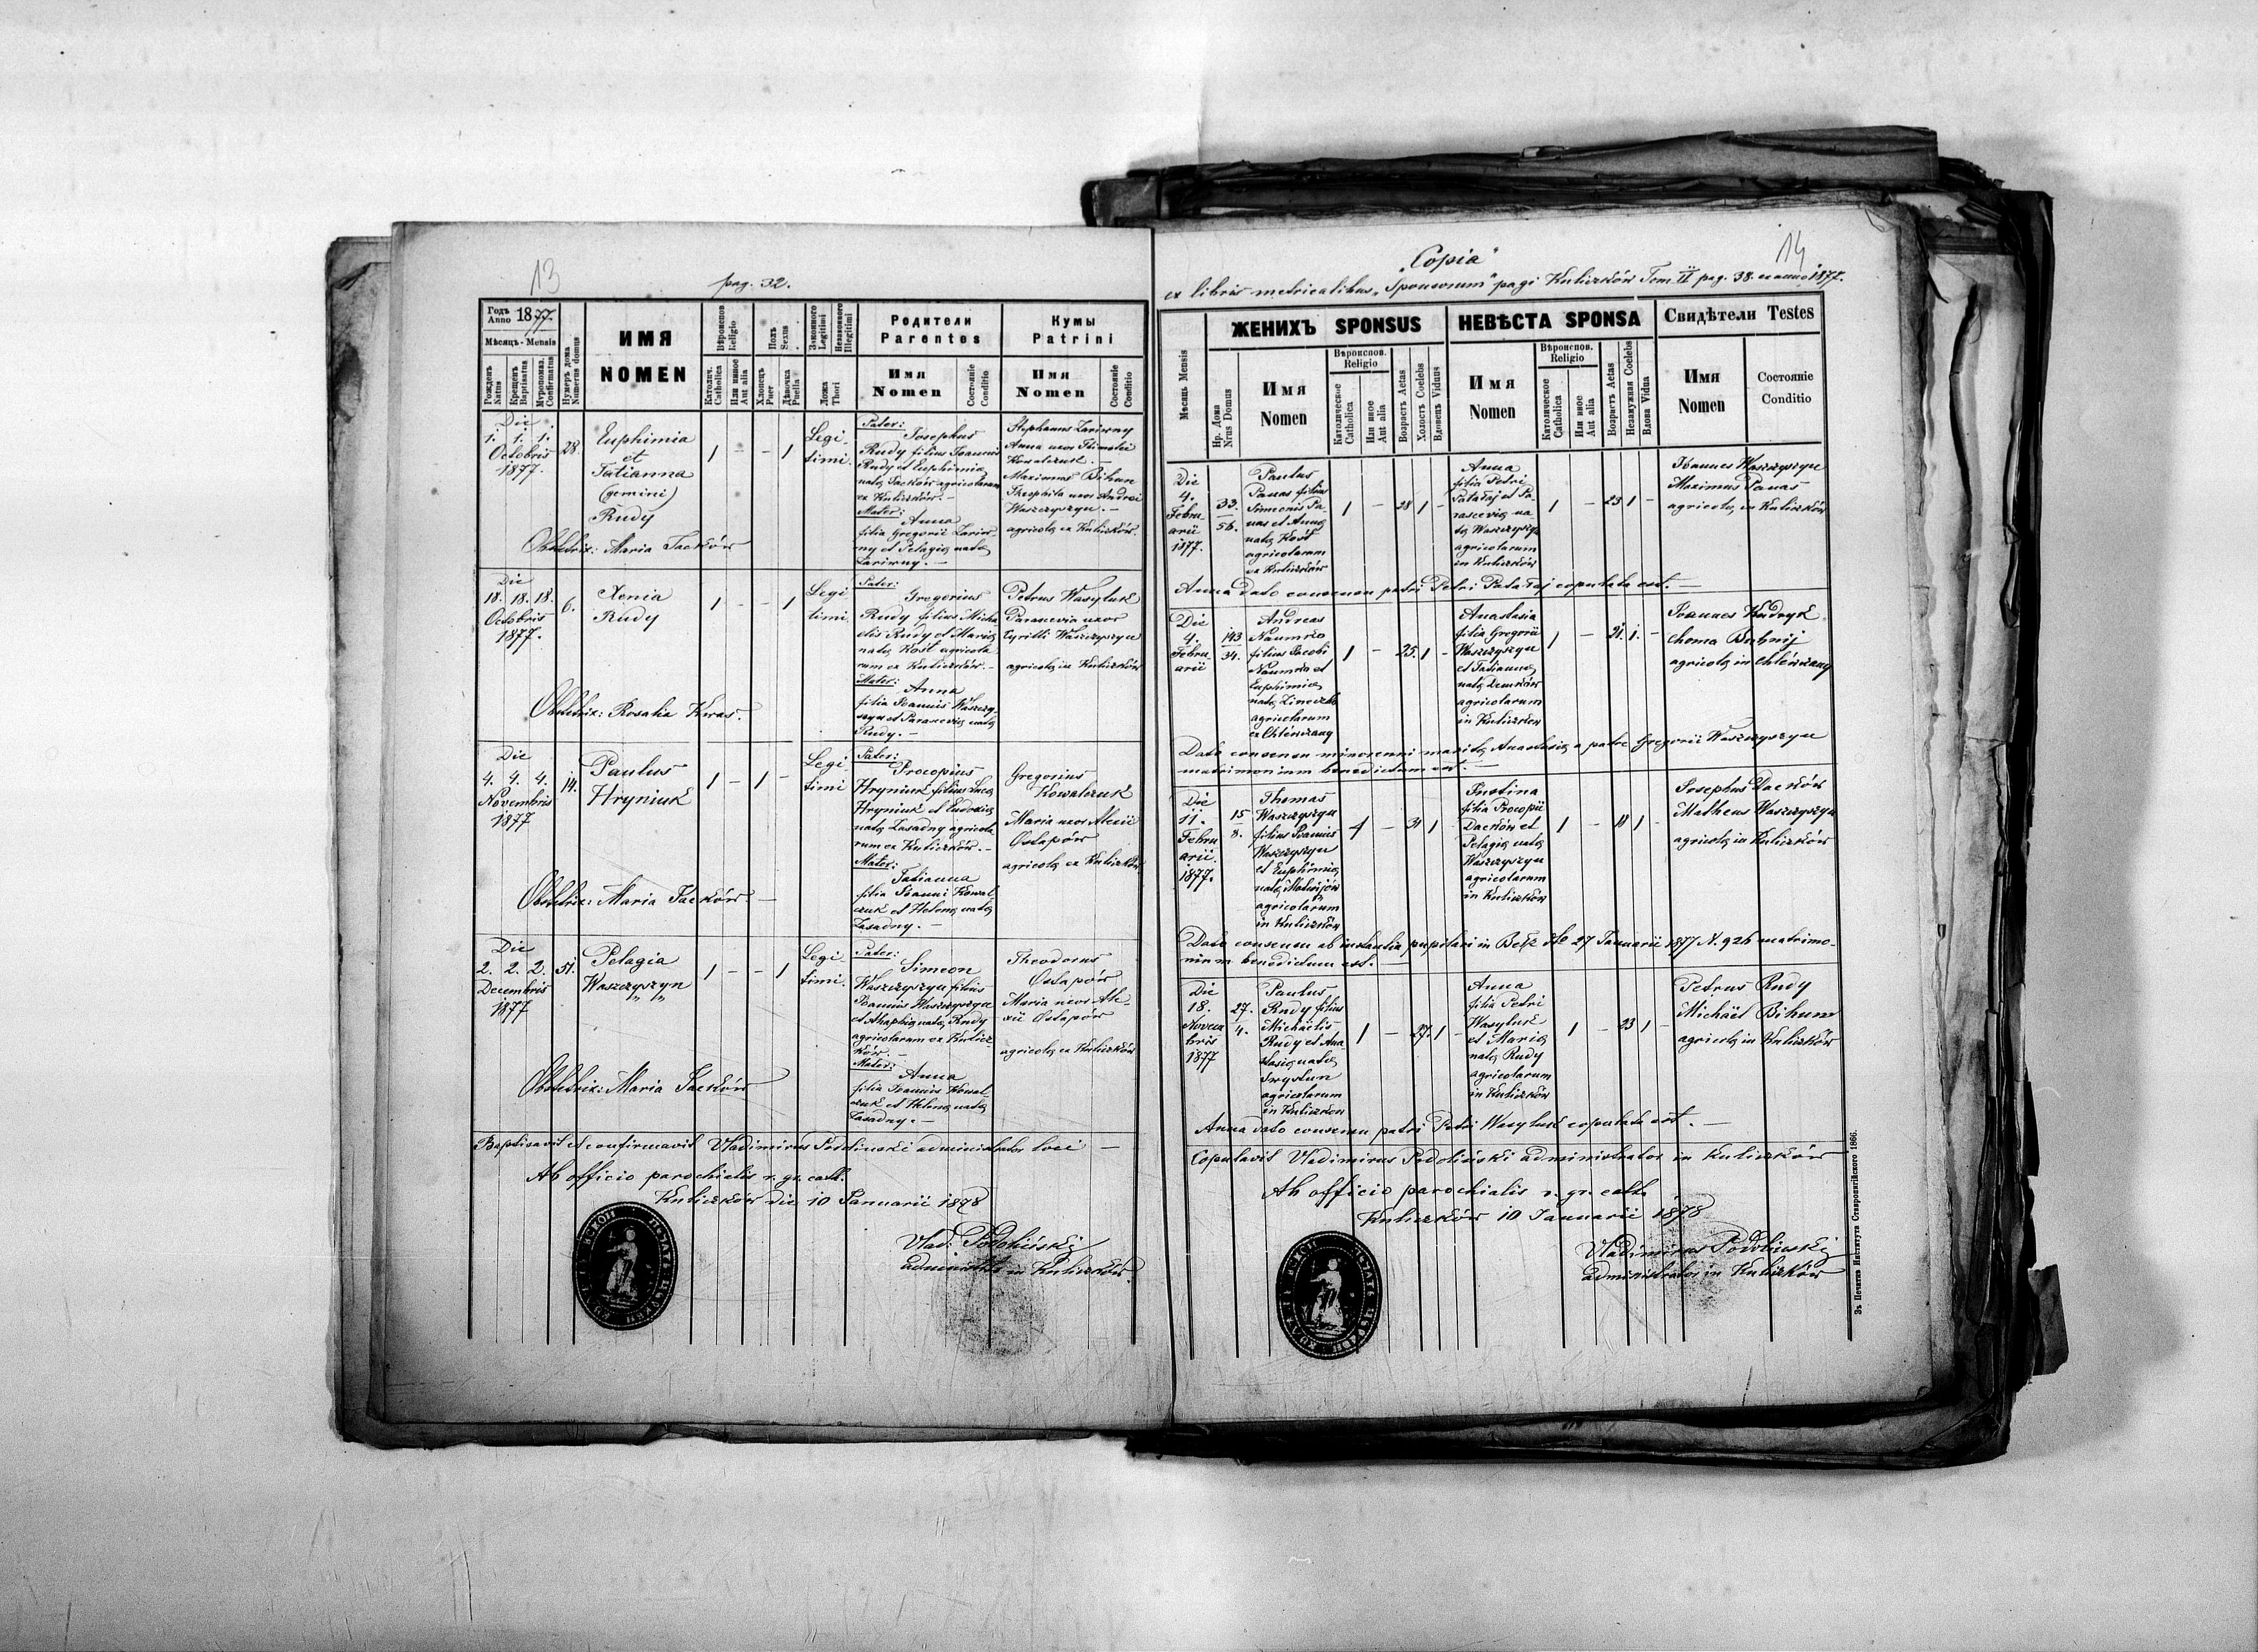 13
pag. 32.
Годъ Anno 1877.
Мѣсяцъ - Mensis
Рожденъ Natus
Крещенъ Baptisatus
Мѵропомаз. Confirmatus
Нумеръ дома Numerus domus
ИМЯ
NOMEN
Вѣроиспов Religio
Католич. Catholica
Или иное Aut alia
Полъ Sexus
Хлопець Puer
Дѣвочка Puella
Законного Legitimi
Незаконного Illegitimi
Ложа Thori
Родители
Parentes
Имя
Nomen
Состоянiе Conditio
Кумы
Patrini
Имя
Nomen
Состоянiе Conditio
Die
1. 1. 1.
Octobris
1877.
28.
Euphimia
et
Tatianna
(gemini)
Rudy
1 - - 1
Legi-
timi.
Pater:
Josephus
Rudy filius Joannis
Rudy et Euphimia
nata Jacków agricolarum
ex Kuliczków. -
Mater:
Anna
filia Gregorii
et Pelagia nata
Stephanus
Anna uxor
Kowalczuk. -
Marianna Bihun
Theophila uxor Andrei
Waszczyszyn. -
agricolae ex Kuliczków.
Obstetrix: Maria Jacków
Die
18. 18. 18.
Octobris
1877.
6.
Xenia
Rudy
1 - - 1
Legi
timi.
Pater:
Gregorius
Rudy filius Micha-
elis Rudy et Maria
nata Kost agricola
rum ex Kuliczków. -
Mater:
Anna
filia Joannis Waszczy-
szyn et Parascevia nata
Rudy. -
Petrus Wasyluk
Parascevia uxor
Cyrilli Waszczyszyn
agricolae in Kuliczków
Obstetrix: Rosalia Kwas.
Die
4. 4. 4.
Novembris
1877
14.
Paulus
Hryniuk
1 - 1 -
Legi
timi
Pater:
Procopius
Hryniuk filius Luca
Hryniuk et Eudoxia
nata Zasadny agricola
rum ex Kuliczków. -
Mater:
Tatianna
filia Joanni Kowal
czuk et Helena nata
Zasadny. -
Gregorius
Kowalczuk
Maria uxor Alexii
Ostapów
agricolae ex Kuliczków
Obstetrix: Maria Jacków. -
Die
2. 2. 2.
Decembris
1877
51.
Pelagia
Waszczyszyn
1 - - 1
Legi-
timi.
Pater:
Simeon
Waszczyszyn filius
Joannis Waszczyszyn
et Ahaphia nata Rudy
agricolarum ex Kulicz
ków. -
Mater:
Anna
filia Joannis Kowal
czuk et Helena nata
Zasadny. -
Theodorus
Ostapów
Maria uxor Ale-
xii Ostapów
agricolae ex Kuliczków
Obstetrix: Maria Jacków
Baptisavit et confirmavit Vladimirus Podolinski administrator loci -
Ab officio parochialis r. gr. cath.
Kuliczków die 10 Januarii 1878
Vlad: Podoliński
administr in Kuliczków.
14
„Copia"
ex libris metricalibus „Sponsorum" pagi Kuliczków Tom. II pag. 38. ex anno 1877.
Мѣсяць Mensis
ЖЕНИХЪ SPONSUS
Нр. Дома Nrus Domus
Имя
Nomen
Вѣроиспов. Religio
Католическое Catholica
Или иное Aut alia
Возрастъ Aetas
Холостъ Coelebs
Вдовецъ Viduus
НЕВѢСТА SPONSA
Имя
Nomen
Вѣроиспов. Religio
Католическое Catholica
Или иное Aut alia
Возрастъ Aetas
Незамужная Coelebs
Вдова Vidua
Свидѣтели Testes
Имя
Nomen
Состоянiе
Conditio
Die
4.
Febru
arii
1877.
33.
56.
Paulus
Panas filius
Simeonis Pa-
nas et Anna
nata Kost
agricolarum
ex Kuliczków
1 - 28 1 -
Anna
filia Petri
Patałaj et Pa-
rascevia na-
ta Waszczyszyn
agricolarum
in Kuliczków
1 - 23 1 -
Joannes Waszczyszyn
Maximus Panas
agricolae in Kuliczków
Anna dato consensu patri Petri Patałaj copulata est. -
Die
4.
Febru
arii
143
34.
Andreas
Naumko
filius Jacobi
Naumko et
Euphimia
nata
agricolarum
1 - 25. 1 -
Anastasia
filia Gregorii
Waszczyszyn
et Tatianna
nata Demków
agricolarum
in Kuliczków
1 - 21. 1. -
Joannes Kudryk
Choma Bubnij
agricolae in
Dato consensu minorenni Anastasia a patre Gregorii Waszczyszyn
matrimonium benedictum est. -
Die
11.
Febru
arii.
1877.
15
8.
Thomas
Waszczyszyn
filius Joannis
Waszczyszyn
et Euphimia
nata Matwijów
agricolarum
in Kuliczków
1 - 31 1
Justina
filia Procopii
Dacków et
Pelagia nata
Waszczyszyn
agricolarum
in Kuliczków
1 - 18 1 -
Josephus Dacków
Matheus Waszczyszyn
agricolae in Kuliczków
Dato consensu ab instantia pupilari in Bełz dto 27 Januarii 1877 N. 926 matrimo-
nium benedictum est.
Die
18.
Novem
bris
1877
27.
4.
Paulus
Rudy filius
Michaelis
Rudy et Ana-
stasia nata
agricolarum
in Kuliczków
1 - 27. 1 -
Anna
filia Petri
Wasyluk
et Maria
nata Rudy
agricolarum
in Kuliczków
1 - 23 1 -
Petrus Rudy
Michael Bihun
agricolae in Kuliczków
Anna dato consensu patri Petri Wasyluk copulata est. -
Copulavit Vladimirus Podoliński administrator in Kuliczków
Ab officio parochialis r. gr. cath.
Kuliczków 10 Januarii 1878
Vladimirus Podoliński
administrator in Kuliczków
Зъ Печатнѣ Института Ставропигiйского 1866.